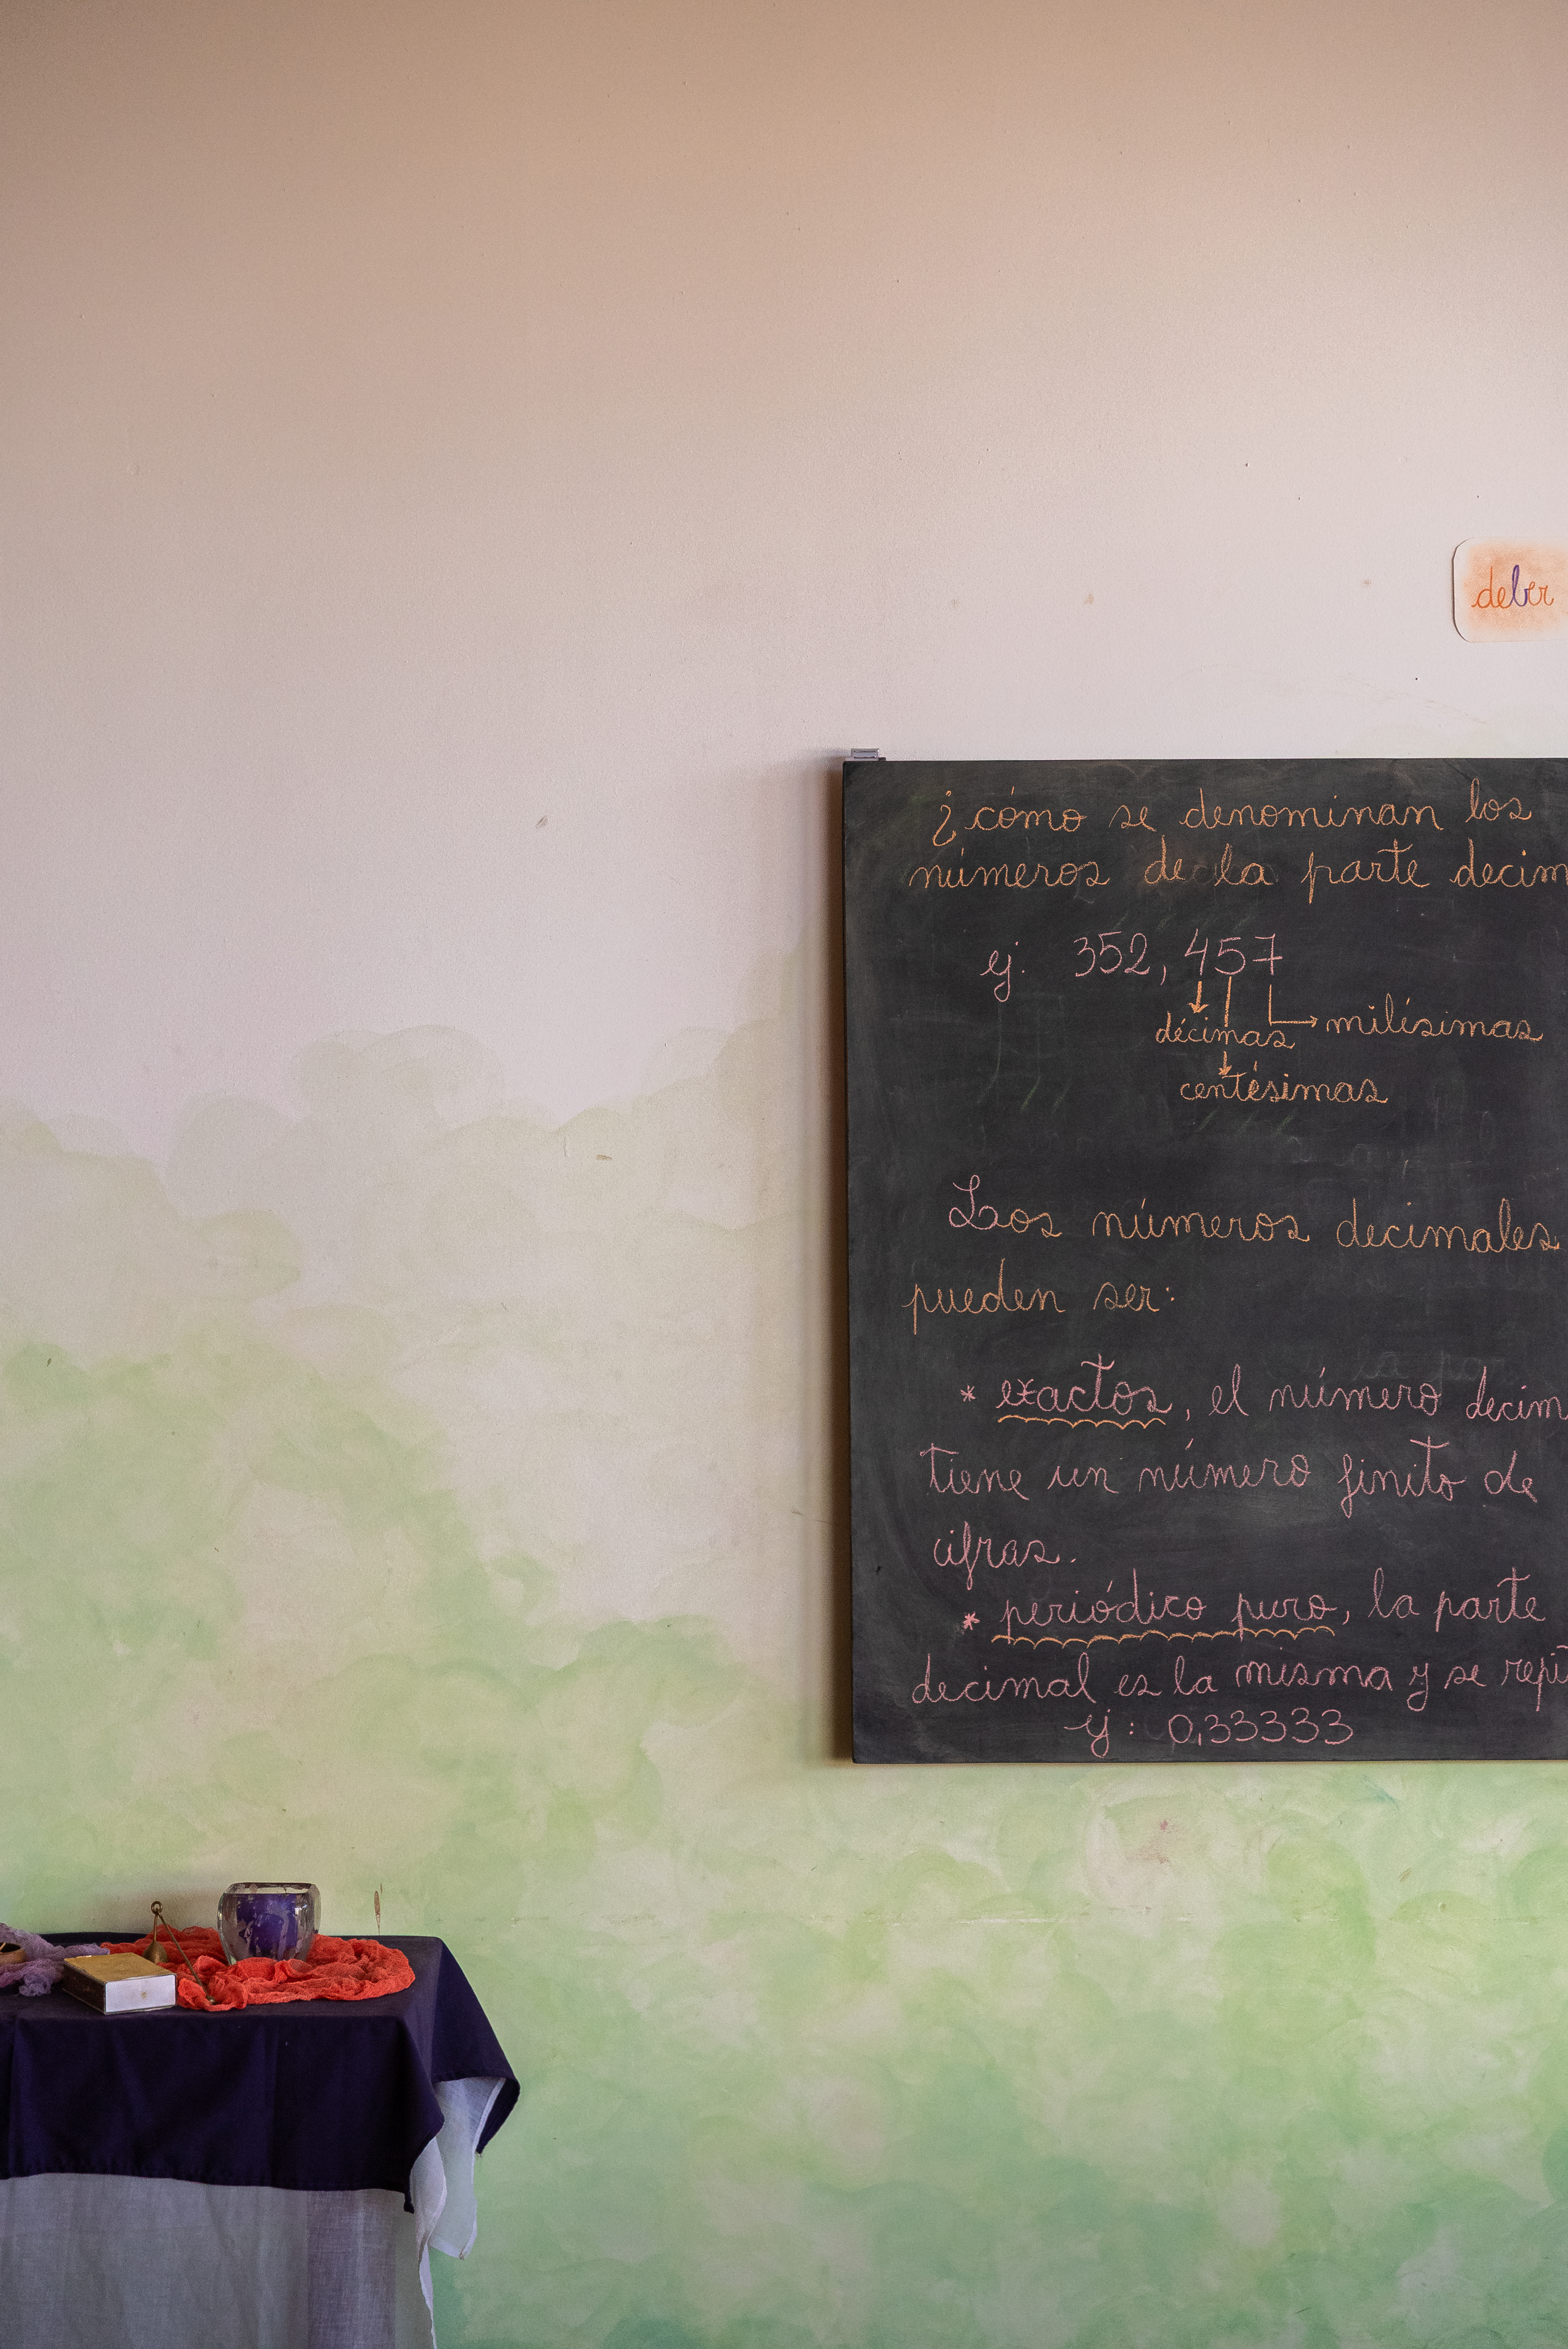 deber
¿cómo se denominan los
números de la parte decim
ej. 352,457
décimas milésimas
centésimas
Los números decimales
pueden ser:
* exactos, el número decim
tiene un número finito de
cifras.
* periódico puro, la parte
decimal es la misma y se repi
ej: 0,33333